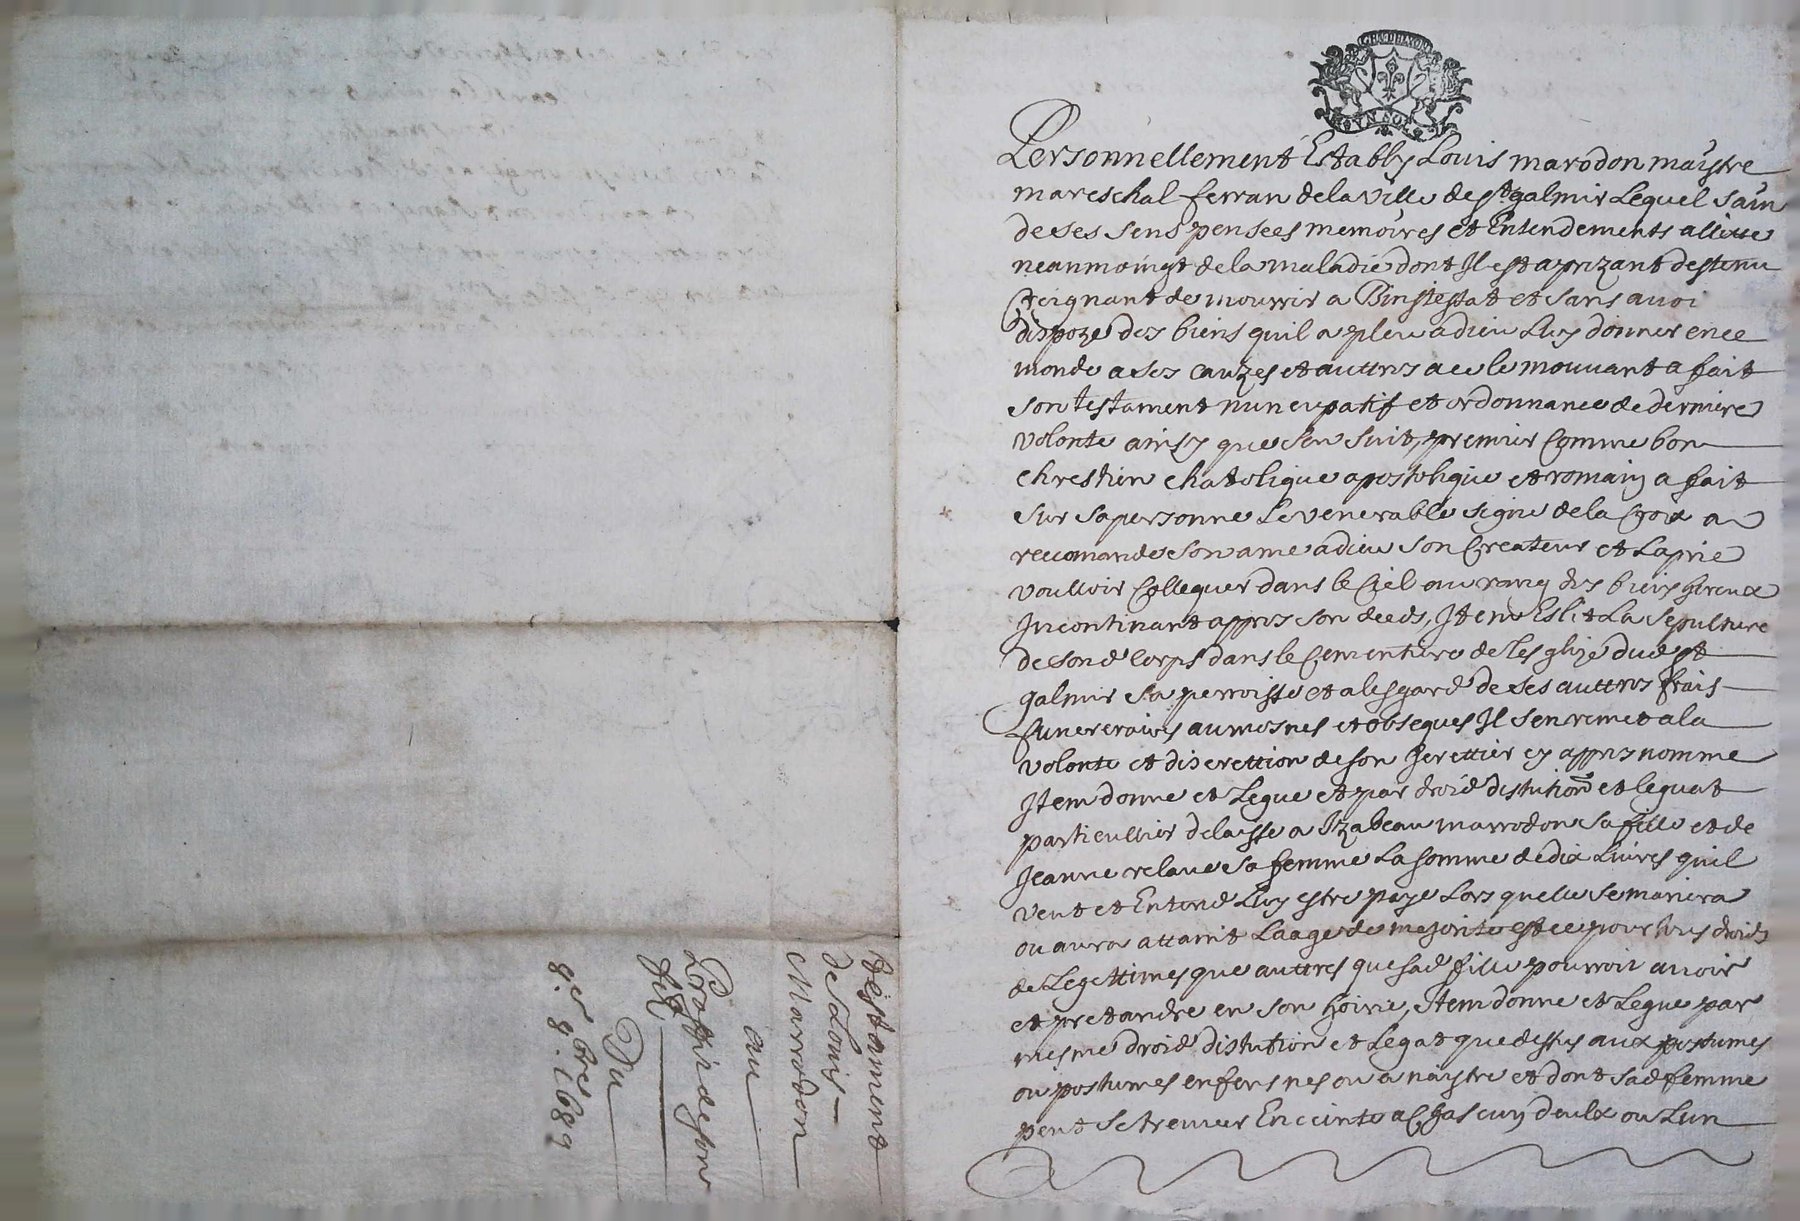 Testament
de Louis
Marrodon
au
proffit de son
filz
Du
8.e 8.bres 1689
GN. DE LYON
VN SOL
Personnellement Estably Louis marodon maystre
mareschal ferran dela ville de st galmir Lequel sain
de ses sens pensees memoires et Entendements allitte
neanmoingt de la maladie dont Il est aprizant destenu
Creignant de mourrir a Binstestat et sans avoi
dispoze des biens quil a pleu a dieu Luy donner en ce
monde a ses cauzes et auttres a ce le mouvant a fait
son testament nuncupatif et ordonnance de derniere
volonte ainsy que sen suit, premier Comme bon
chrestien chatolique apostolique et romain a fait
sur sa personne Le venerable signe de la Croix a
recomande son ame a dieu son Createur et La prie
voulloir Colloquer dans le Ciel au rang des bien hereux
Incontinant appres son deceds, Item Eslit La sepulture
de sond corps dans le Cementiere de lesglize dud st
galmir sa perroisse et a lesgard de ses auttres frais
funereraires aumosnes et obseques Il sen remet a la
volonte et discrettion de son herettier cy appres nomme
Item donne et Legue et par droid distution et leguat
particullier delaisse a Izabeau marrodon sa fille et de
Jeanne relave sa femme La somme de dix Livres quil
veut et Entend Luy estre paye Lors quelle se mariera
ou aura attaint Laage de majorite et ce pour tous droids
de Legettimes que auttres que sad fille pourroit avoir
et pretandre en son hoirie, Item donne et Legue par
mesme droid distution et Legat que dessus aux postumes
ou postumes enfens nes ou a naystre et dont sad femme
peut se treuver Enceinte a Chascun deulx ou Lun